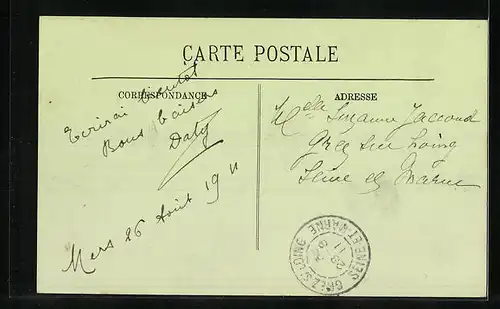 CARTE POSTALE
CORRESPONDANCE
Ecrirai bientôt
Bons baisers
Daty
Mers 26 Août 1911
ADRESSE
Melle Suzanne Jaccoud
Grez sur Loing
Seine et Marne
GREZ-S-LOING
SEINE-ET-MARNE